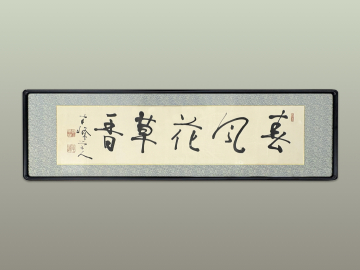 春風花草香